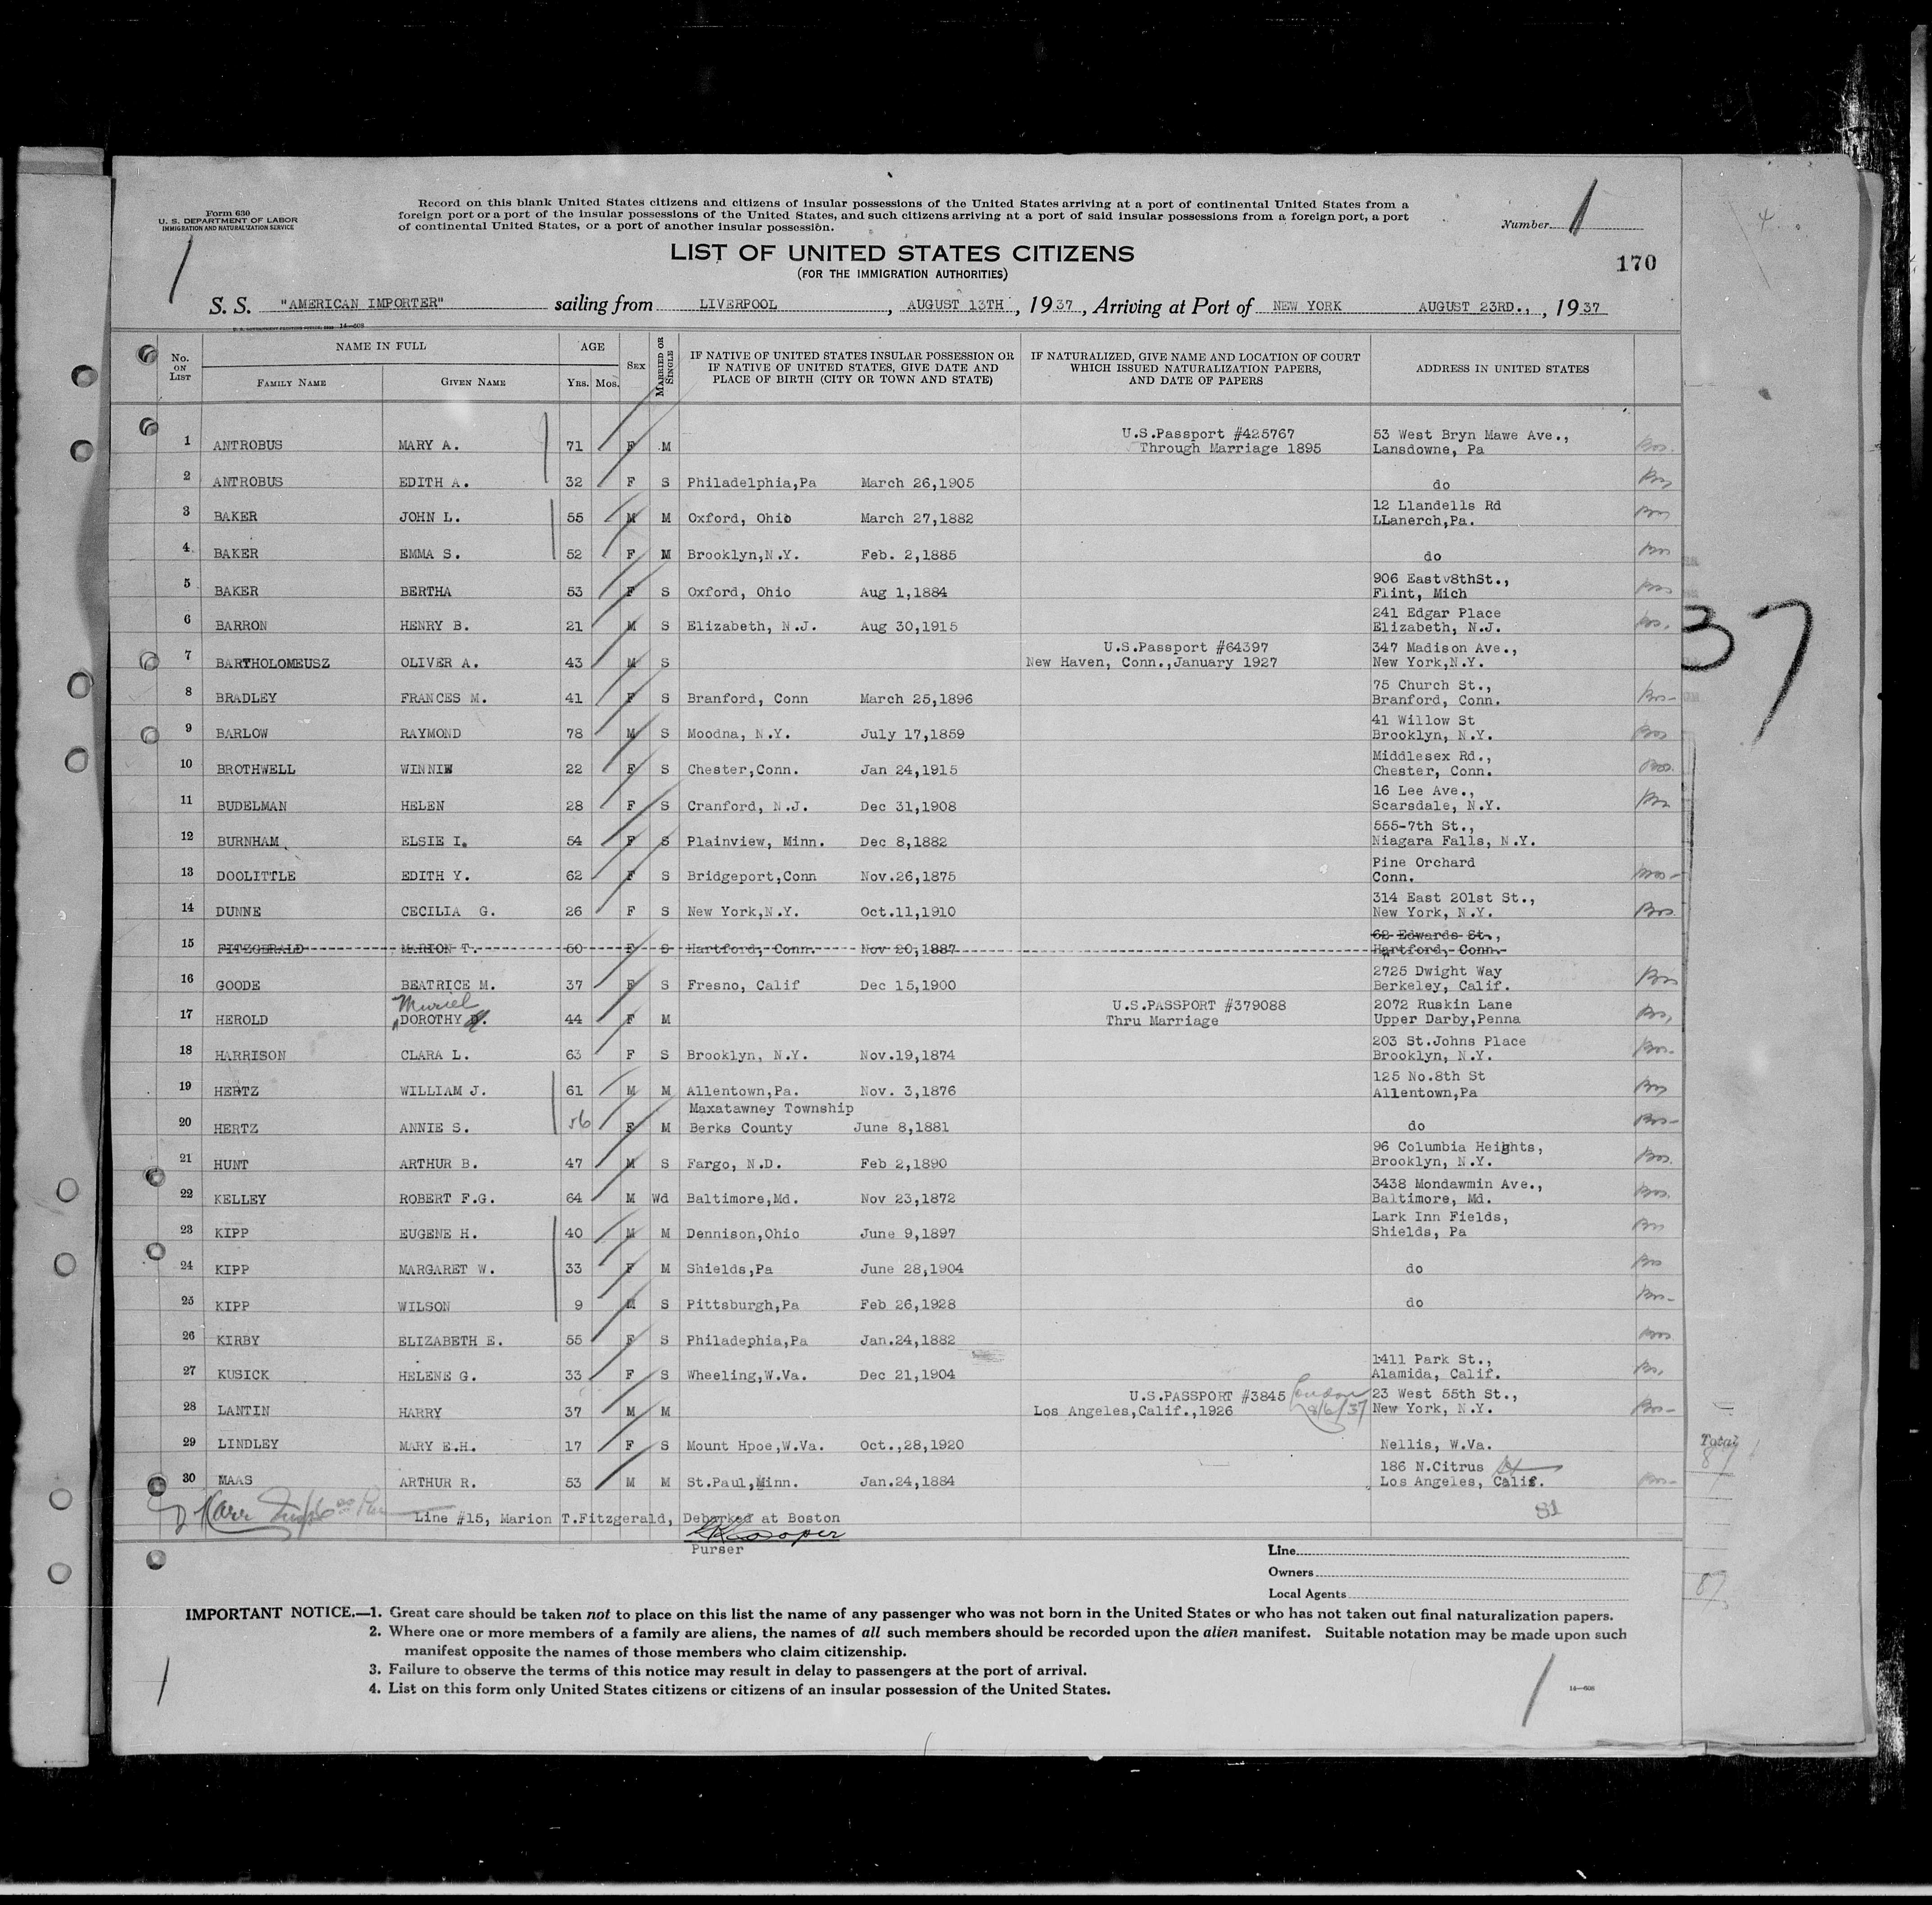 Form 630
U. S. DEPARTMENT OF LABOR
IMMIGRATION AND NATURALIZATION SERVICE
Record on this blank United States citizens and citizens of insular possessions of the United States arriving at a port of continental United States from a
foreign port or a port of the insular possessions of the United States, and such citizens arriving at a port of said insular possessions from a foreign port, a port
of continental United States, or a port of another insular possession.
Number 1
LIST OF UNITED STATES CITIZENS
(FOR THE IMMIGRATION AUTHORITIES)
170
1
S. S. "AMERICAN IMPORTER" sailing from LIVERPOOL, AUGUST 13TH, 1937, Arriving at Port of NEW YORK AUGUST 23RD., , 1937
No. ON LIST
NAME IN FULL
FAMILY NAME GIVEN NAME
AGE
YRS. MOS.
SEX
MARRIED OR SINGLE
IF NATIVE OF UNITED STATES INSULAR POSSESSION OR
IF NATIVE OF UNITED STATES, GIVE DATE AND
PLACE OF BIRTH (CITY OR TOWN AND STATE)
IF NATURALIZED, GIVE NAME AND LOCATION OF COURT
WHICH ISSUED NATURALIZATION PAPERS,
AND DATE OF PAPERS
ADDRESS IN UNITED STATES
U.S.Passport #425767 53 West Bryn Mawe Ave.,
1 ANTROBUS MARY A. 71 F M Through Marriage 1895 Lansdowne, Pa
2 ANTROBUS EDITH A. 32 F S Philadelphia,Pa March 26,1905 do
12 Llandells Rd
3 BAKER JOHN L. 55 M M Oxford, Ohio March 27,1882 LLanerch,Pa.
4 BAKER EMMA S. 52 F M Brooklyn,N.Y. Feb. 2,1885 do
906 East 8thSt.,
5 BAKER BERTHA 53 F S Oxford, Ohio Aug 1,1884 Flint, Mich
241 Edgar Place
6 BARRON HENRY B. 21 M S Elizabeth, N.J. Aug 30,1915 Elizabeth, N.J.
37
U.S.Passport #64397 347 Madison Ave.,
7 BARTHOLOMEUSZ OLIVER A. 43 M S New Haven, Conn.,January 1927 New York,N.Y.
75 Church St.,
8 BRADLEY FRANCES M. 41 F S Branford, Conn March 25,1896 Branford, Conn.
41 Willow St
9 BARLOW RAYMOND 78 M S Moodna, N.Y. July 17,1859 Brooklyn, N.Y.
Middlesex Rd.,
10 BROTHWELL WINNIE 22 F S Chester,Conn. Jan 24,1915 Chester, Conn.
16 Lee Ave.,
11 BUDELMAN HELEN 28 F S Cranford, N.J. Dec 31,1908 Scarsdale, N.Y.
555-7th St.,
12 BURNHAM ELSIE I. 54 F S Plainview, Minn. Dec 8,1882 Niagara Falls, N.Y.
Pine Orchard
13 DOOLITTLE EDITH Y. 62 F S Bridgeport,Conn Nov.26,1875 Conn.
314 East 201st St.,
14 DUNNE CECILIA G. 26 F S New York,N.Y. Oct.11,1910 New York, N.Y.
68 Edwards St.,
15 FITZGERALD MARION T. 50 F S Hartford, Conn. Nov 20,1887 Hartford, Conn.
2725 Dwight Way
16 GOODE BEATRICE M. 37 F S Fresno, Calif Dec 15,1900 Berkeley, Calif.
Muriel U.S.PASSPORT #379088 2072 Ruskin Lane
17 HEROLD DOROTHY 44 F M Thru Marriage Upper Darby,Penna
203 St.Johns Place
18 HARRISON CLARA L. 63 F S Brooklyn, N.Y. Nov.19,1874 Brooklyn, N.Y.
125 No.8th St
19 HERTZ WILLIAM J. 61 M M Allentown,Pa. Nov. 3,1876 Allentown,Pa
Maxatawney Township
20 HERTZ ANNIE S. 56 F M Berks County June 8,1881 do
96 Columbia Heights,
21 HUNT ARTHUR B. 47 M S Fargo, N.D. Feb 2,1890 Brooklyn, N.Y.
3438 Mondawmin Ave.,
22 KELLEY ROBERT F.G. 64 M Wd Baltimore,Md. Nov 23,1872 Baltimore, Md.
Lark Inn Fields,
23 KIPP EUGENE H. 40 M M Dennison,Ohio June 9,1897 Shields, Pa
24 KIPP MARGARET W. 33 F M Shields,Pa June 28,1904 do
25 KIPP WILSON 9 M S Pittsburgh,Pa Feb 26,1928 do
26 KIRBY ELIZABETH E. 55 F S Philadephia,Pa Jan.24,1882
1411 Park St.,
27 KUSICK HELENE G. 33 F S Wheeling,W.Va. Dec 21,1904 Alamida, Calif.
U.S.PASSPORT #3845 London 23 West 55th St.,
28 LANTIN HARRY 37 M M Los Angeles,Calif.,1926 8/6/37 New York, N.Y.
29 LINDLEY MARY E.H. 17 F S Mount Hpoe,W.Va. Oct.,28,1920 Nellis, W.Va.
Total
87
186 N.Citrus
30 MAAS ARTHUR R. 53 M M St.Paul,Minn. Jan.24,1884 Los Angeles, Calif.
Line #15, Marion T.Fitzgerald, Debarked at Boston
81
Cooper
Purser
Line
Owners
Local Agents
87
IMPORTANT NOTICE.—1. Great care should be taken not to place on this list the name of any passenger who was not born in the United States or who has not taken out final naturalization papers.
2. Where one or more members of a family are aliens, the names of all such members should be recorded upon the alien manifest. Suitable notation may be made upon such
manifest opposite the names of those members who claim citizenship.
3. Failure to observe the terms of this notice may result in delay to passengers at the port of arrival.
4. List on this form only United States citizens or citizens of an insular possession of the United States.
14—608
1
1